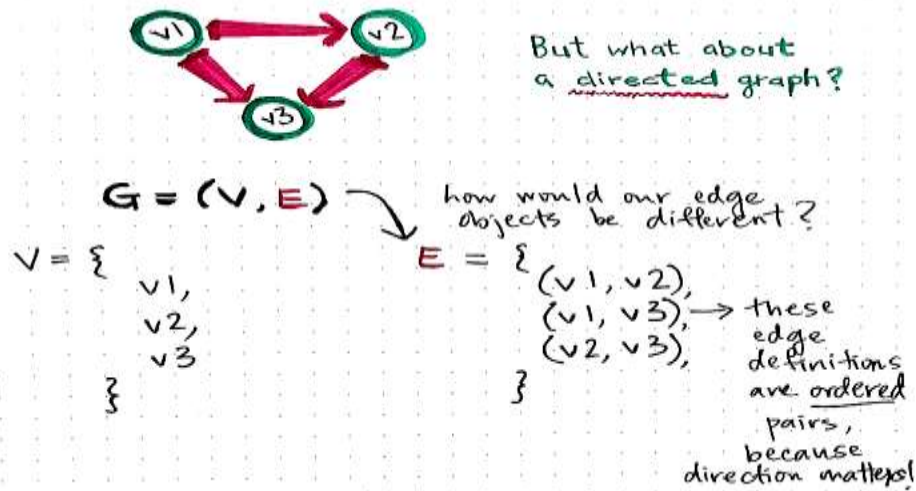 v1
v2
v3
But what about
a directed graph?
G = (V, E)
how would our edge
objects be different?
V = {
v1,
v2,
v3
}
E = {
(v1, v2),
(v1, v3),
(v2, v3),
}
these
edge
definitions
are ordered
pairs,
because
direction matters!